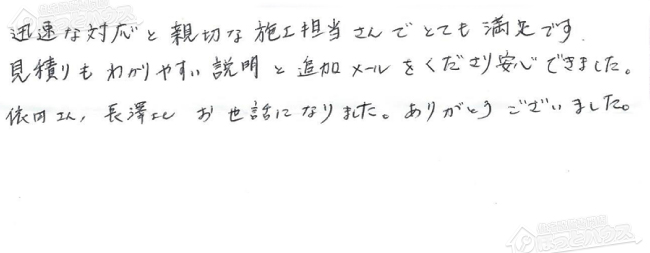 迅速な対応と親切な施工担当さんでとても満足です.
見積りもわかりやすい説明と追加メールをくださり安心できました。
依田さん, 長澤さん お世話になりました。ありがとうございました。